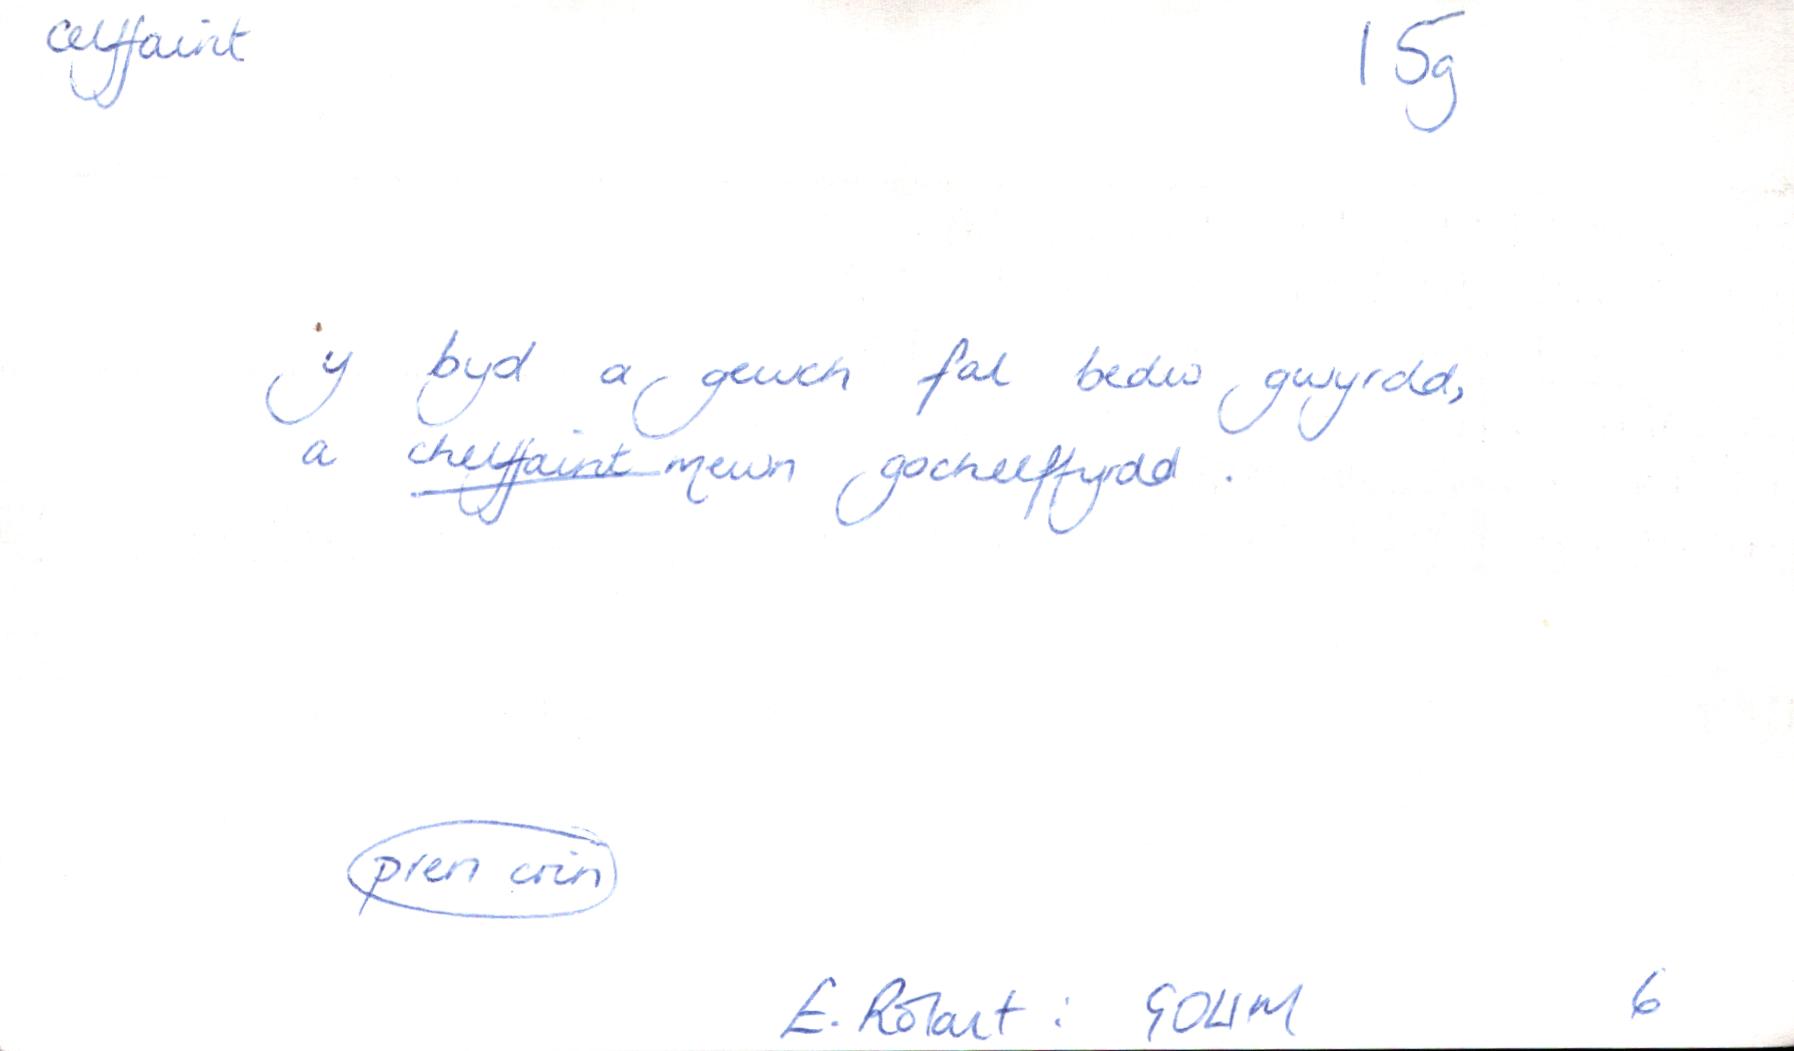 celffaint 15g
y byd a gewch fal bedw gwyrdd,
a chelffaint mewn gochelffyrdd.
pren crin
E. Rolant: GOLlM 6